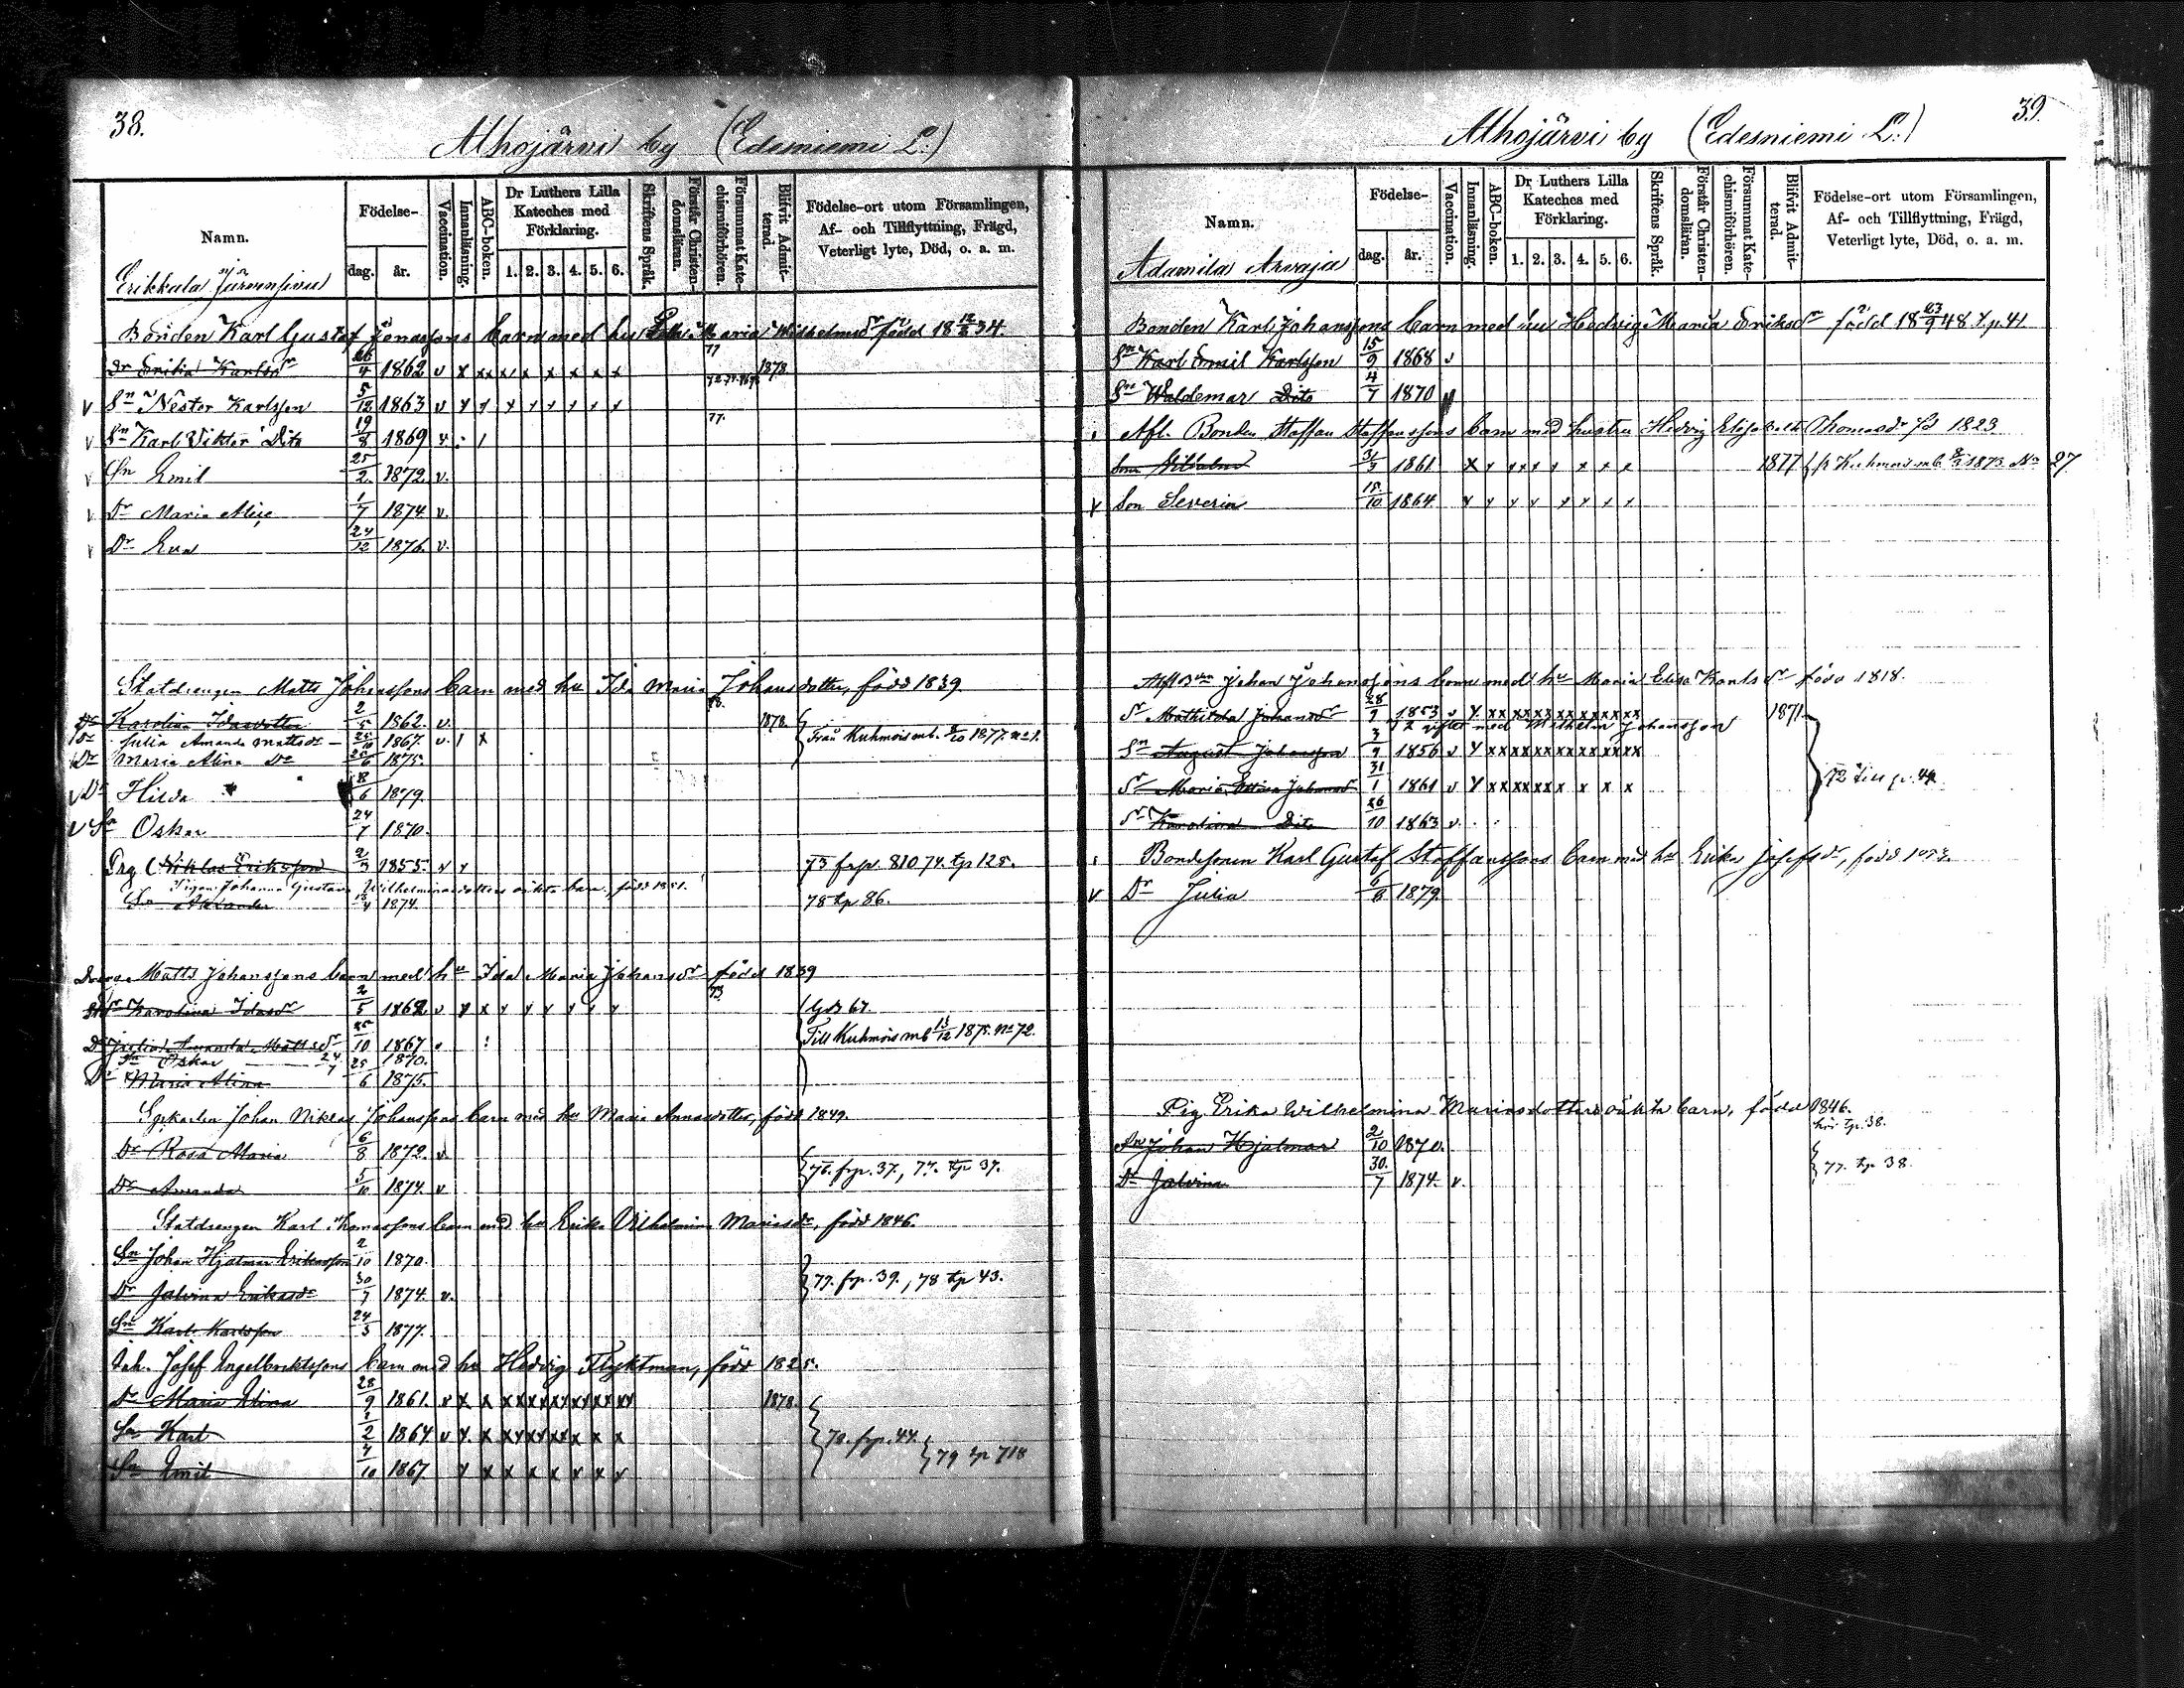 38.
Alhojärvi by (Edesniemi L:)
Namn.
Födelse-
dag.
år.
Vaccination.
Innanläsning.
ABC-boken.
Dr Luthers Lilla Kateches med Förklaring.
1. 2. 3. 4. 5. 6.
Skriftens Språk.
Förstår Christendomsläran.
Försummat Katechismiförhören.
Blifvit Admitterad.
Födelse-ort utom Församlingen,
Af- och Tillflyttning, Frägd,
Veterligt lyte, Död, o. a. m.
Erikkala Järvensivu
Bonden Karl Gustaf Jonassons barn med hu Maria Wilhelmsdr född 18 34.
Dr Karlsdr 26/4 1862 v x xx x x x x x 1878
v Sn Nestor Karlsson 5/12 1863 v
v Sn Karl Viktor Dito 19/8 1869 v
v Sn Emil 25/2 1872 v.
v Dr Maria Alise 1/7 1874 v.
v Dr Eva 24/12 1876. v.
Statdrengen Matts Johanssons barn med hu Ida Maria Johansdotter, född 1839.
Dr Karolina Idasdotter 2/5 1862. v. 1878.
Dr Julia Amanda Mattsdr 25/10 1867. v. Från Kuhmois mb. 1877. no 1.
Dr Maria Alina Dr 25/6 1875.
v Dr Hilda 8/6 1879.
v Sn Oskar 24/7 1870.
Drg Niklas Eriksson 2/3 1855. v 73 frp. 810. 74. tp 125.
Pigan Johanna Gustava Wilhelminasdotters oäkta barn, född 1851.
Sn Alexander 1874. 78 tp 86.
Dreng. Matts Johanssons barn med hu Ida Maria Johansdr född 1839
Dr Karolina Idasdr 2/5 1862 v
Dr Julia Amanda Mattsdr 25/10 1867 Till Kuhmois mb 13/12 1875. no 72.
Sn Oskar 24/7 1870.
Dr Maria Alina 25/6 1875.
Johan Niklas Johanssons barn med hu Maria Annasdotter, född 1849.
Dr Rosa Maria 6/8 1872. v
Dr Amanda 5/10 1874. v 76. frp. 37., 77. tp 37.
Statdrengen Karl Thomassons barn med hu Erika Vilhelmina Mariasdr, född 1846.
Sn Johan Hjalmar Eriksson 2/10 1870.
Dr Jalvina Erikasdr 30/7 1874. v. 77. frp. 39., 78 tp 43.
Sn Karl Karlsson 24/3 1877.
Inh. Josef Engelbrektssons barn med hu Hedvig Flyktman, född 1825.
Dr Maria Elina 28/9 1861. v x x 1878.
Sn Karl 2 1864 v 78. frp. 44. 79 tp 718
Sn Emil 4/10 1867
39.
Alhojärvi by (Edesniemi L:)
Namn.
Födelse-
dag.
år.
Vaccination.
Innanläsning.
ABC-boken.
Dr Luthers Lilla Kateches med Förklaring.
1. 2. 3. 4. 5. 6.
Skriftens Språk.
Förstår Christendomsläran.
Försummat Katechismiförhören.
Blifvit Admitterad.
Födelse-ort utom Församlingen,
Af- och Tillflyttning, Frägd,
Veterligt lyte, Död, o. a. m.
Adamila Arvaja
Bonden Karl Johanssons barn med hu Hedvig Maria Eriksdr född 18 23/9 48. t.p. 41.
Sn Karl Emil Karlsson 15/9 1868 v
Sn Waldemar Dito 4/7 1870
Afl. Bonden Staffan Staffanssons barn med hustru Hedvig Elisabeth Thomasdr fd 1823.
Son Vilhelm 31 1861 1877 fr Kuhmois mb. 1873 No 27
v Son Severin 18/10 1864
Afl Bdn Johan Johanssons barn med hu Maria Elisa Karlsdr född 1818.
Dr Mathilda Johansdr 28/9 1853 v 1871
72 gifter med Wilhelm Johansson
Sn August Johansson 3/9 1856 v
Dr Maria Johansdr 31/1 1861 v 72 till p. 44
Dr Karolina Dito 26/10 1863 v.
Bondesonen Karl Gustaf Staffanssons barn med hu Erika Josefsdr, född
v Dr Julia 6/8 1879.
Pig Erika Wilhelmina Mariasdotters oäkta barn, född 1846.
Sn Johan Hjalmar 2/10 1870. tp. 38.
Dr Jalvina 30./7 1874. v. 77. tp 38.